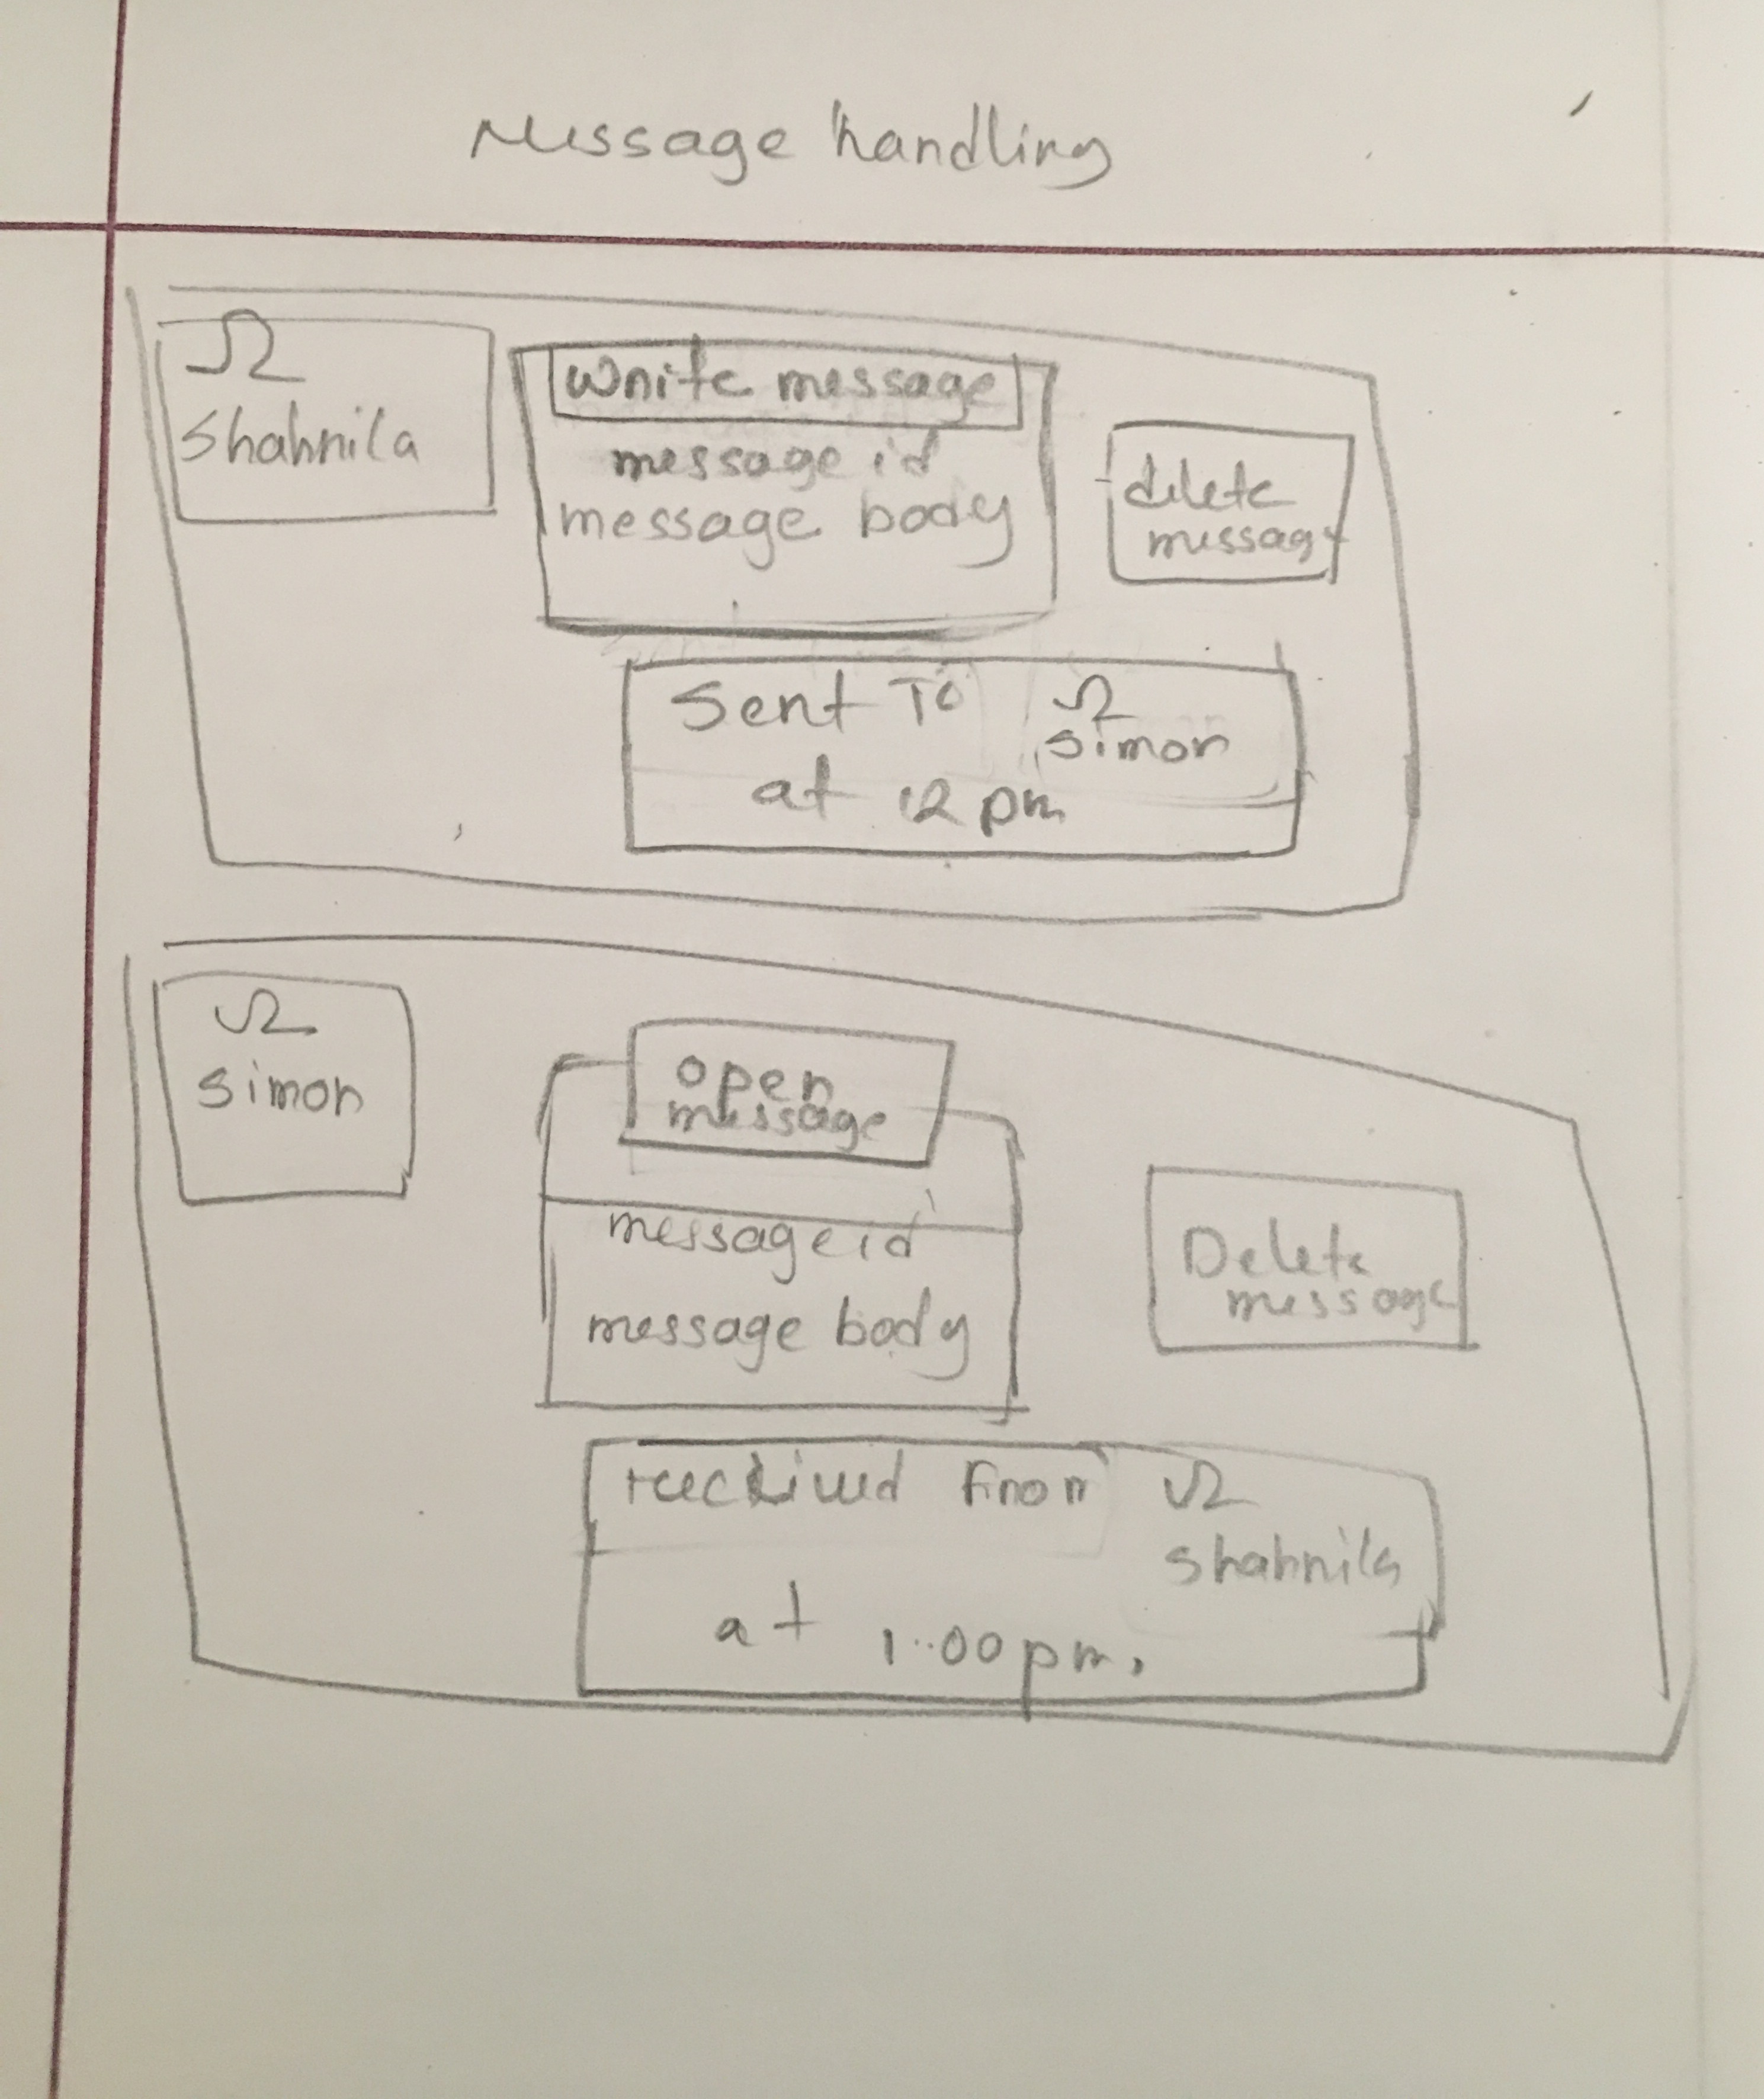 Message handling
Shahnila
Write message
message id
message body
delete
message
Sent To
Simon
at 12 pm
Simon
open
message
message id
message body
Delete
message
received From
Shahnila
at 1.00 pm.